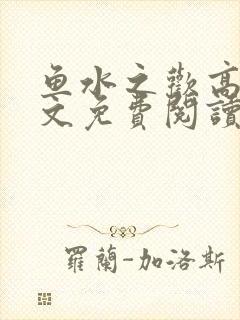 鱼水之歡高
文免費閱讀
羅蘭-加洛斯